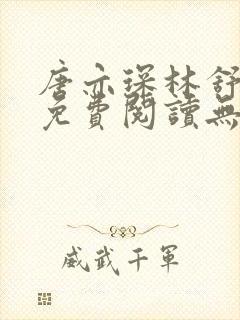 唐亦琛林舒
免費閱讀無
威武千軍